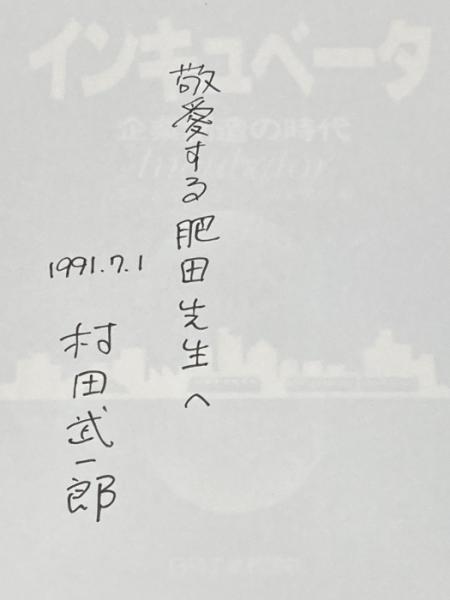 インキュベータ
の時代
敬愛する肥田先生へ
1991.7.1
村田武一郎